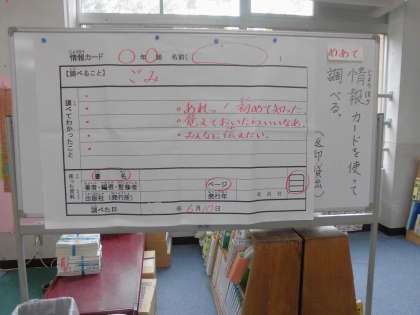 情報カード 年 組 名前( )
【調べること】 ごみ
調べてわかったこと
・あれっ!初めて知った。
・覚えておいたらいいなあ。
・みんなに伝えたい。
書名
ページ
著者・編者・監修者
年 月 日
出版社(発行所)
発行年
調べた日 年 6月10日
めあて
情報カードを使って
調べる。